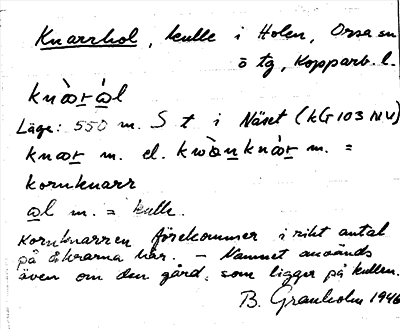 Knarrhol, kulle i Holen, Orsa sn
ö tg, Kopparb. l.
knæ̀ræ̀l
Läge: 550 m. S t i Näset (kG 103 NV)
knær m. el. kwɷ̀nknær m. =
kornknarr
ɷl m. = kulle.
Kornknarren förekommer i rikt antal
på åkrarna här. – Namnet används
även om den gård, som ligger på kullen.
B. Granholm 1946